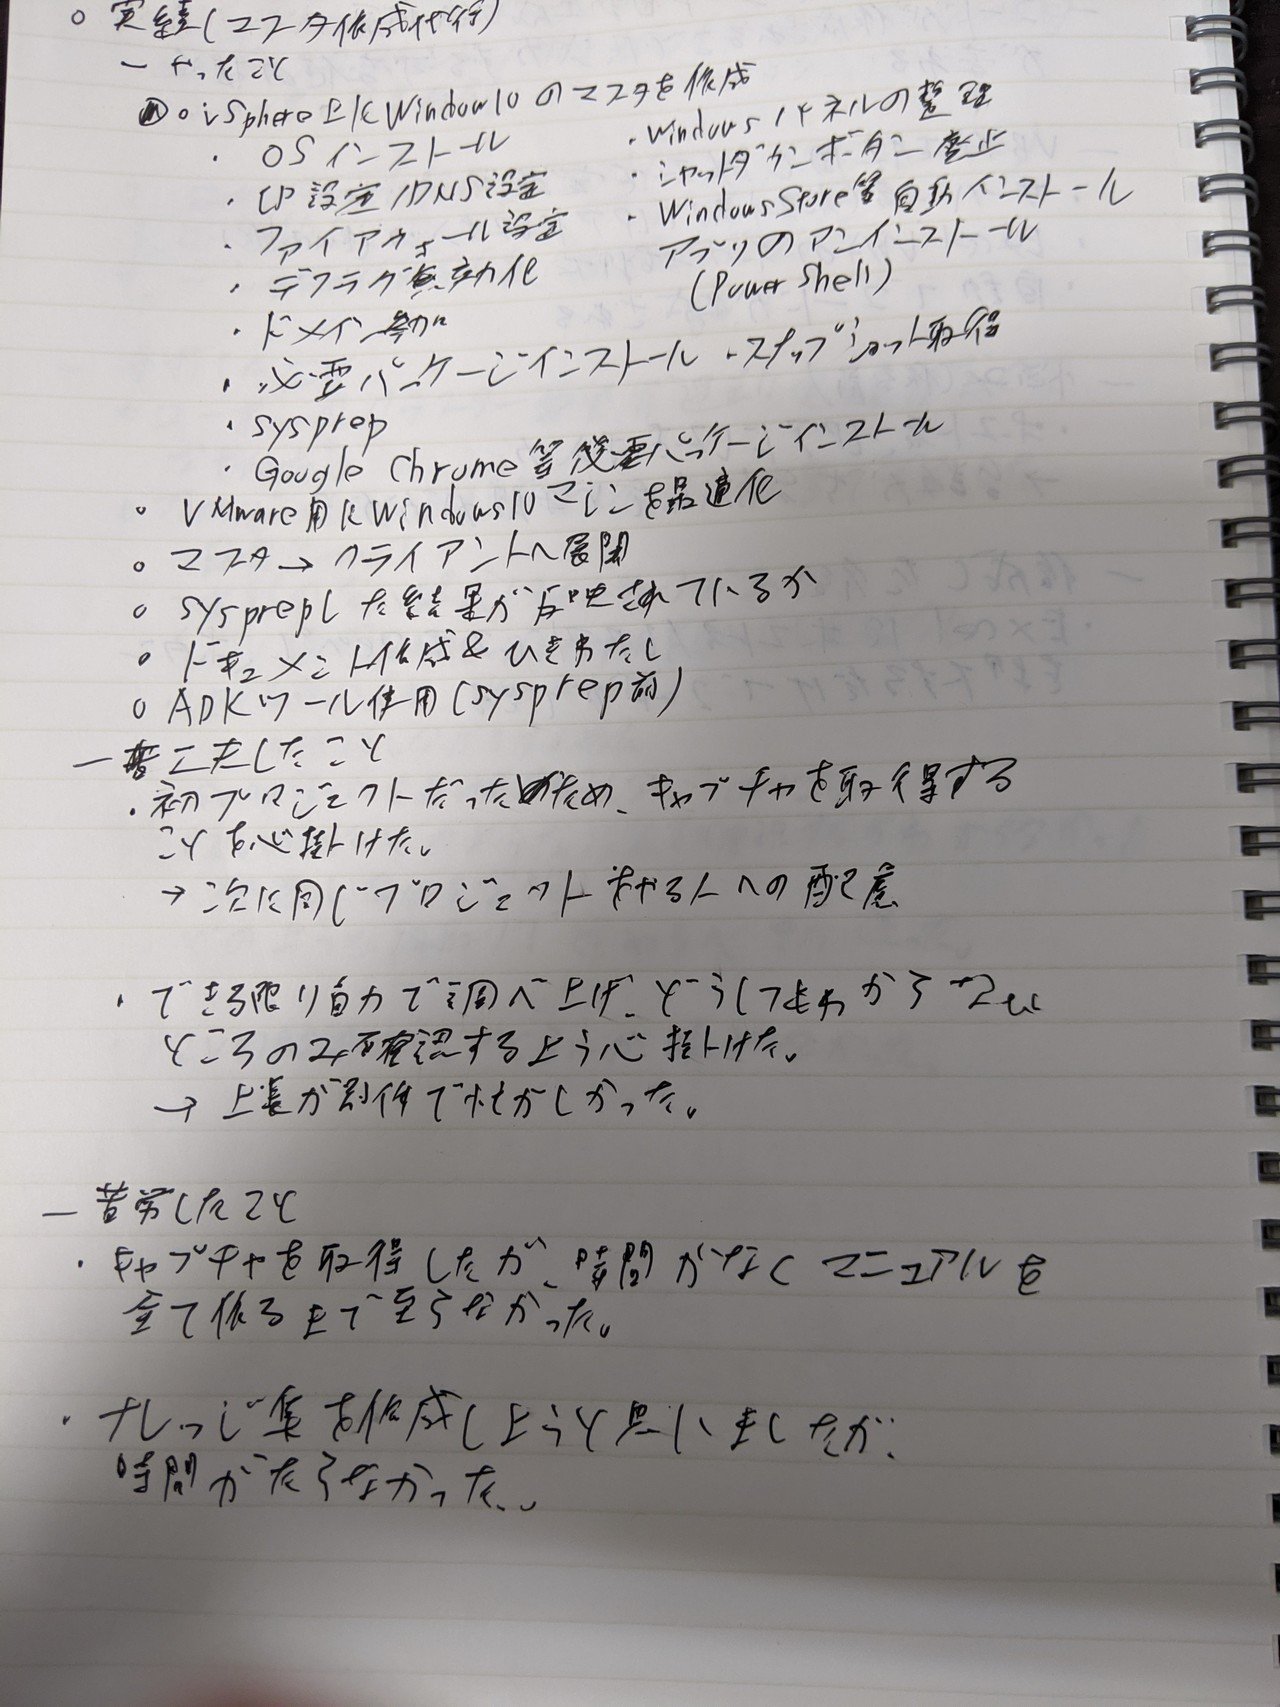 ○ 実績(マスタ作成代行)
ー やったこと
○ vSphere上にWindow10のマスタを作成
・OSインストール
・IP設定/DNS設定
・ファイアウォール設定
・デフラグ無効化
・ドメイン参加
・必要パッケージインストール
・sysprep
・Google Chrome等後要パッケージインストール
・Windowsパネルの整理
・シャットダウンボタン廃止
・WindowsStore等自動インストール
アプリのアンインストール
(PowerShell)
・スナップショット取得
○ VMware用にWindows10マシンを最適化
○ マスタ→クライアントへ展開
○ sysprepした結果が反映されているか
○ ドキュメント作成&ひきわたし
○ ADKツール使用(sysprep前)
ー 工夫したこと
・初プロジェクトだったため、キャプチャを取得する
ことを心掛けた。
→ 次に同じプロジェクトをやる人への配慮
・できる限り自力で調べ上げ、どうしてもわからない
ところのみ確認するよう心掛けた。
→ 上長が別件で忙がしかった。
ー 苦労したこと
・キャプチャを取得したが、時間がなくマニュアルを
全て作るまで至らなかった。
・ナレッジ集を作成しようと思いましたが、
時間がたらなかった。